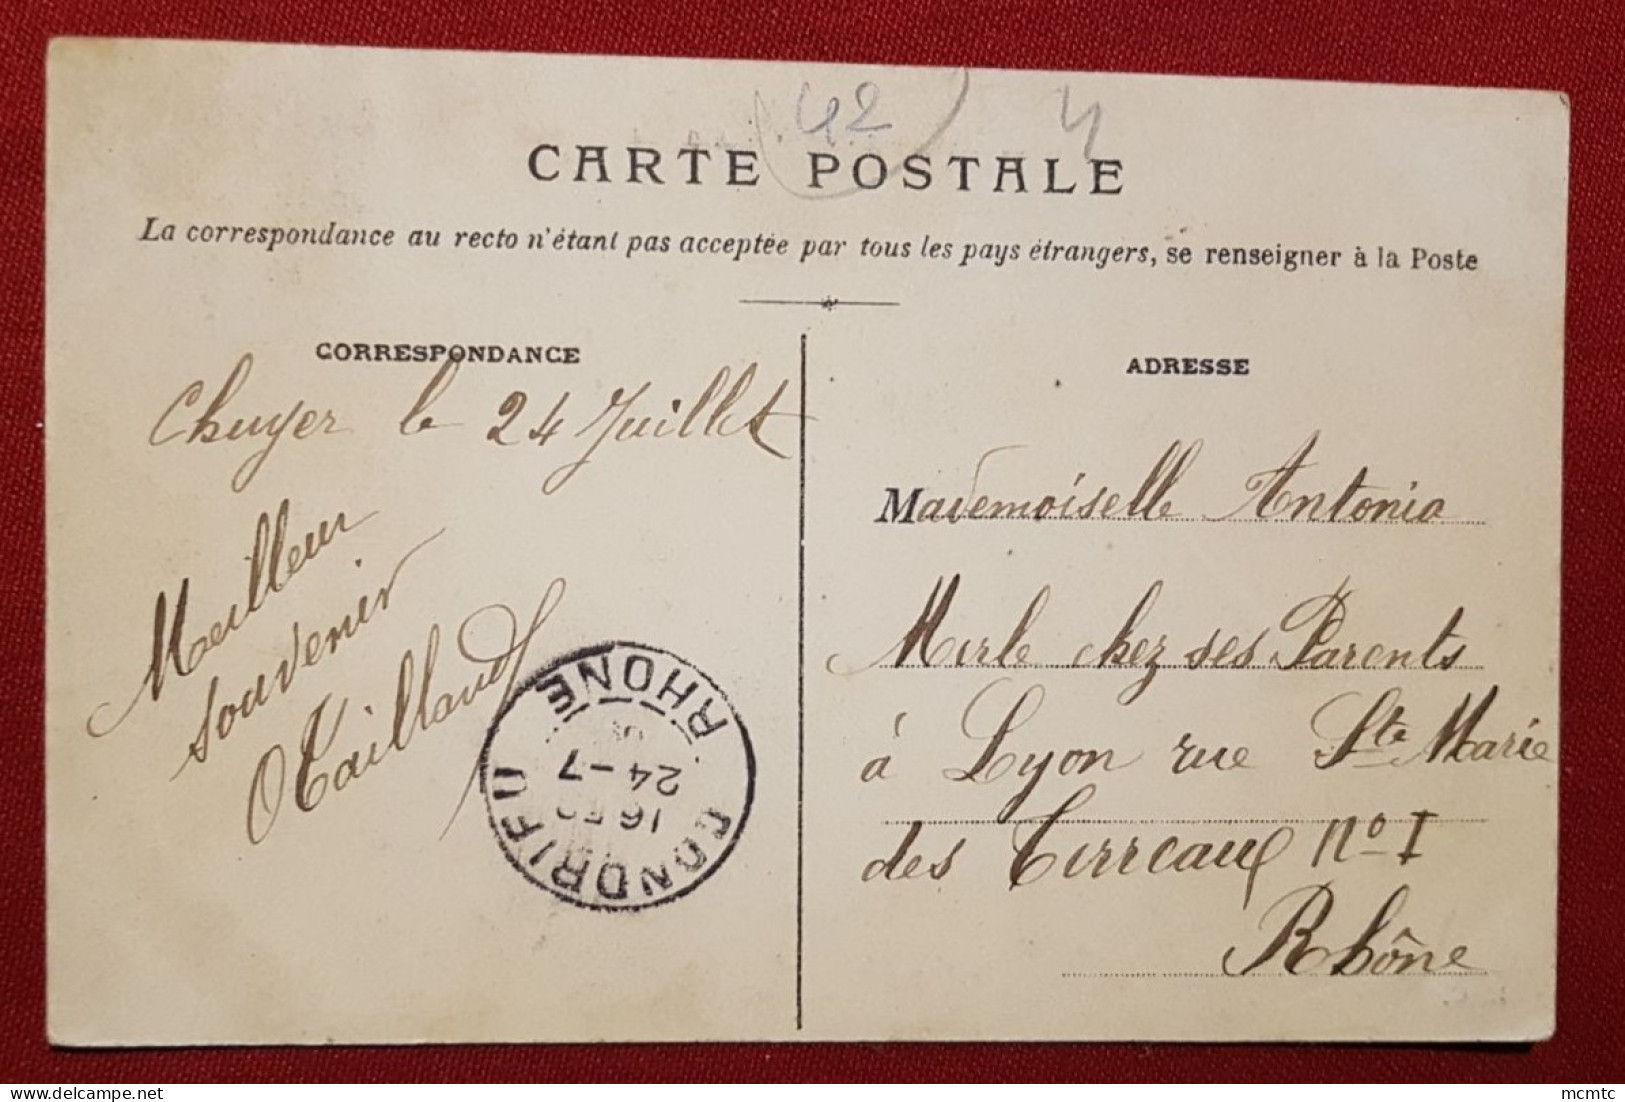 42
4
CARTE POSTALE
La correspondance au recto n'étant pas acceptée par tous les pays étrangers, se renseigner à la Poste
CORRESPONDANCE
Chuyer le 24 Juillet
Meilleur
souvenir
Taillaud
RHONE
24-7
16
CONDRIEU
ADRESSE
Mademoiselle Antonia
Merle chez ses Parents
à Lyon rue Ste Marie
des Terreaux No I
Rhône
mcmtc